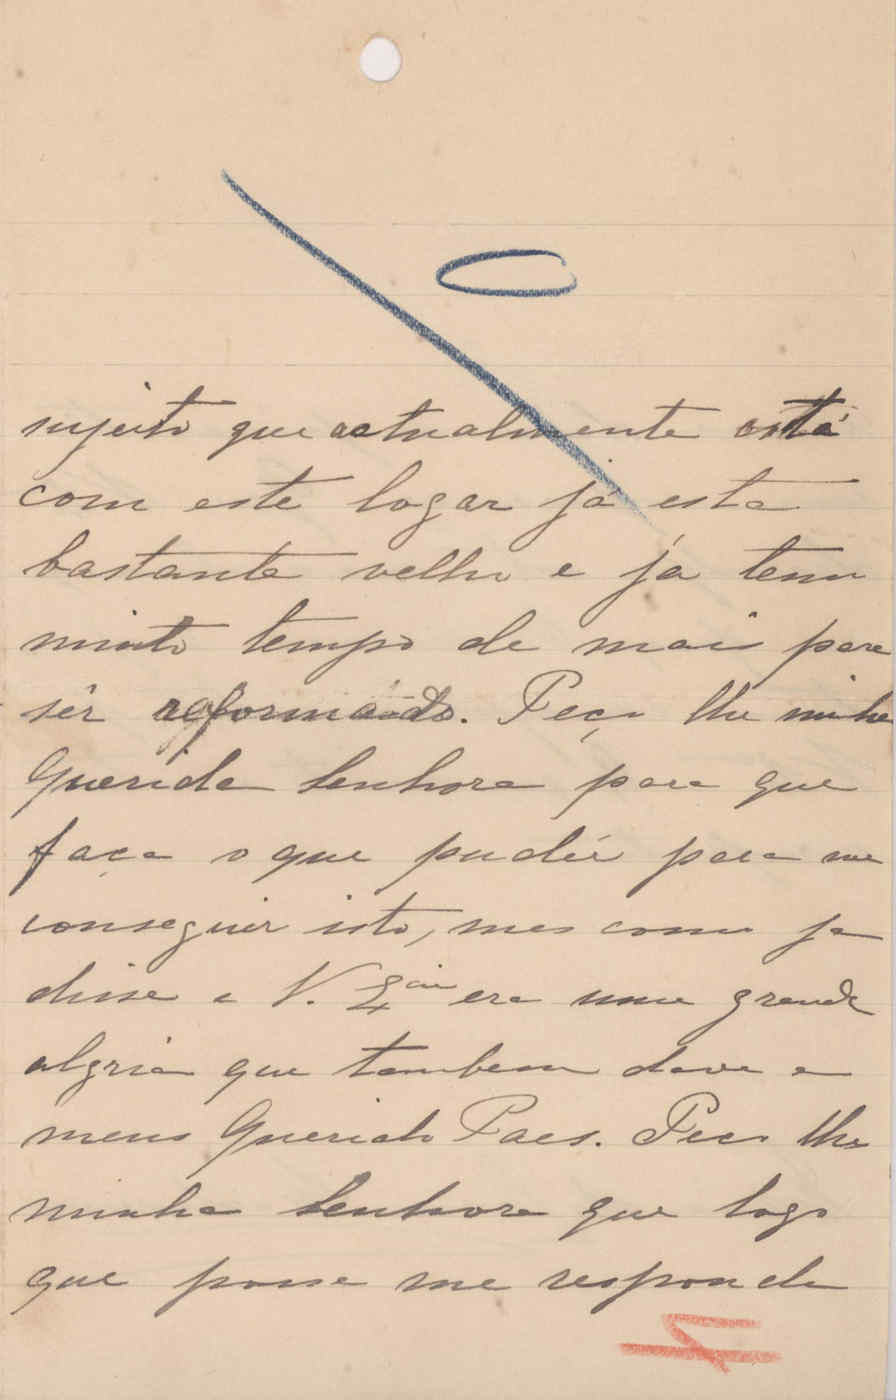 sujeito que actualmente está
com este logar já esta
bastante velho e já tem
muito tempo de mais para
sêr reformado. Peço lhe minha
Querida Senhora para que
faça o que pudér para me
conseguir isto, mas como ja
disse a V. Exᶜⁱᵃ era uma grande
algria que tambem dava a
meus Querido Paes. Peço lhe
minha Senhora que logo
que possa me responda